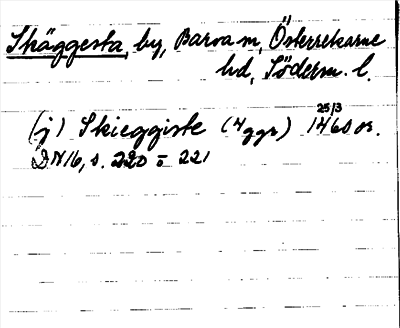 Skäggesta, by, Barva sn, Österrekarne
hd, Söderm. l.
25/3
(j) Skieggiste (4 ggr) 1460 or.
DN 16, s. 220 - 221